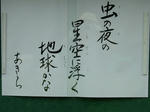 虫の夜の
星空に浮く
地球かな
あきら